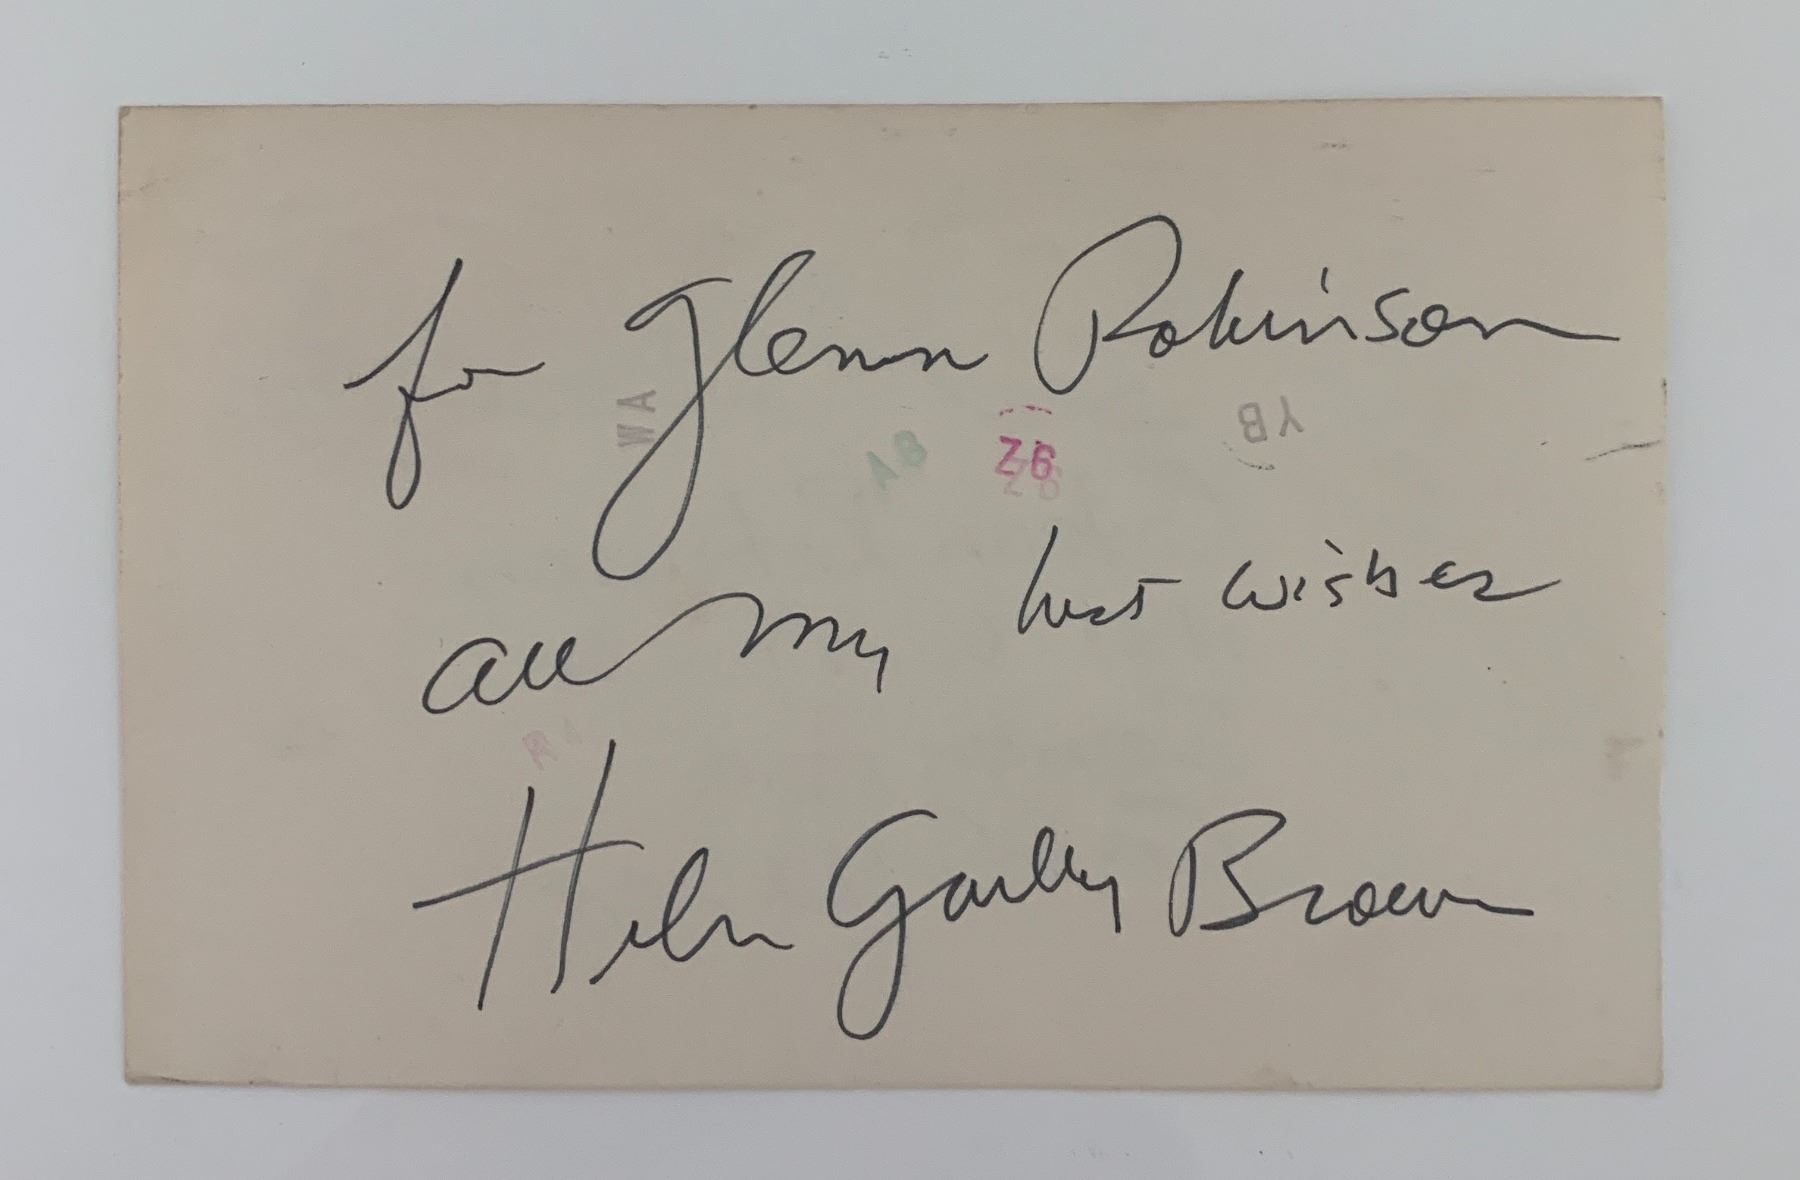 for Glenn Robinson
WA
AB
Z6
Z6
YB
all my best wishes
R
Helen Gurley Brown